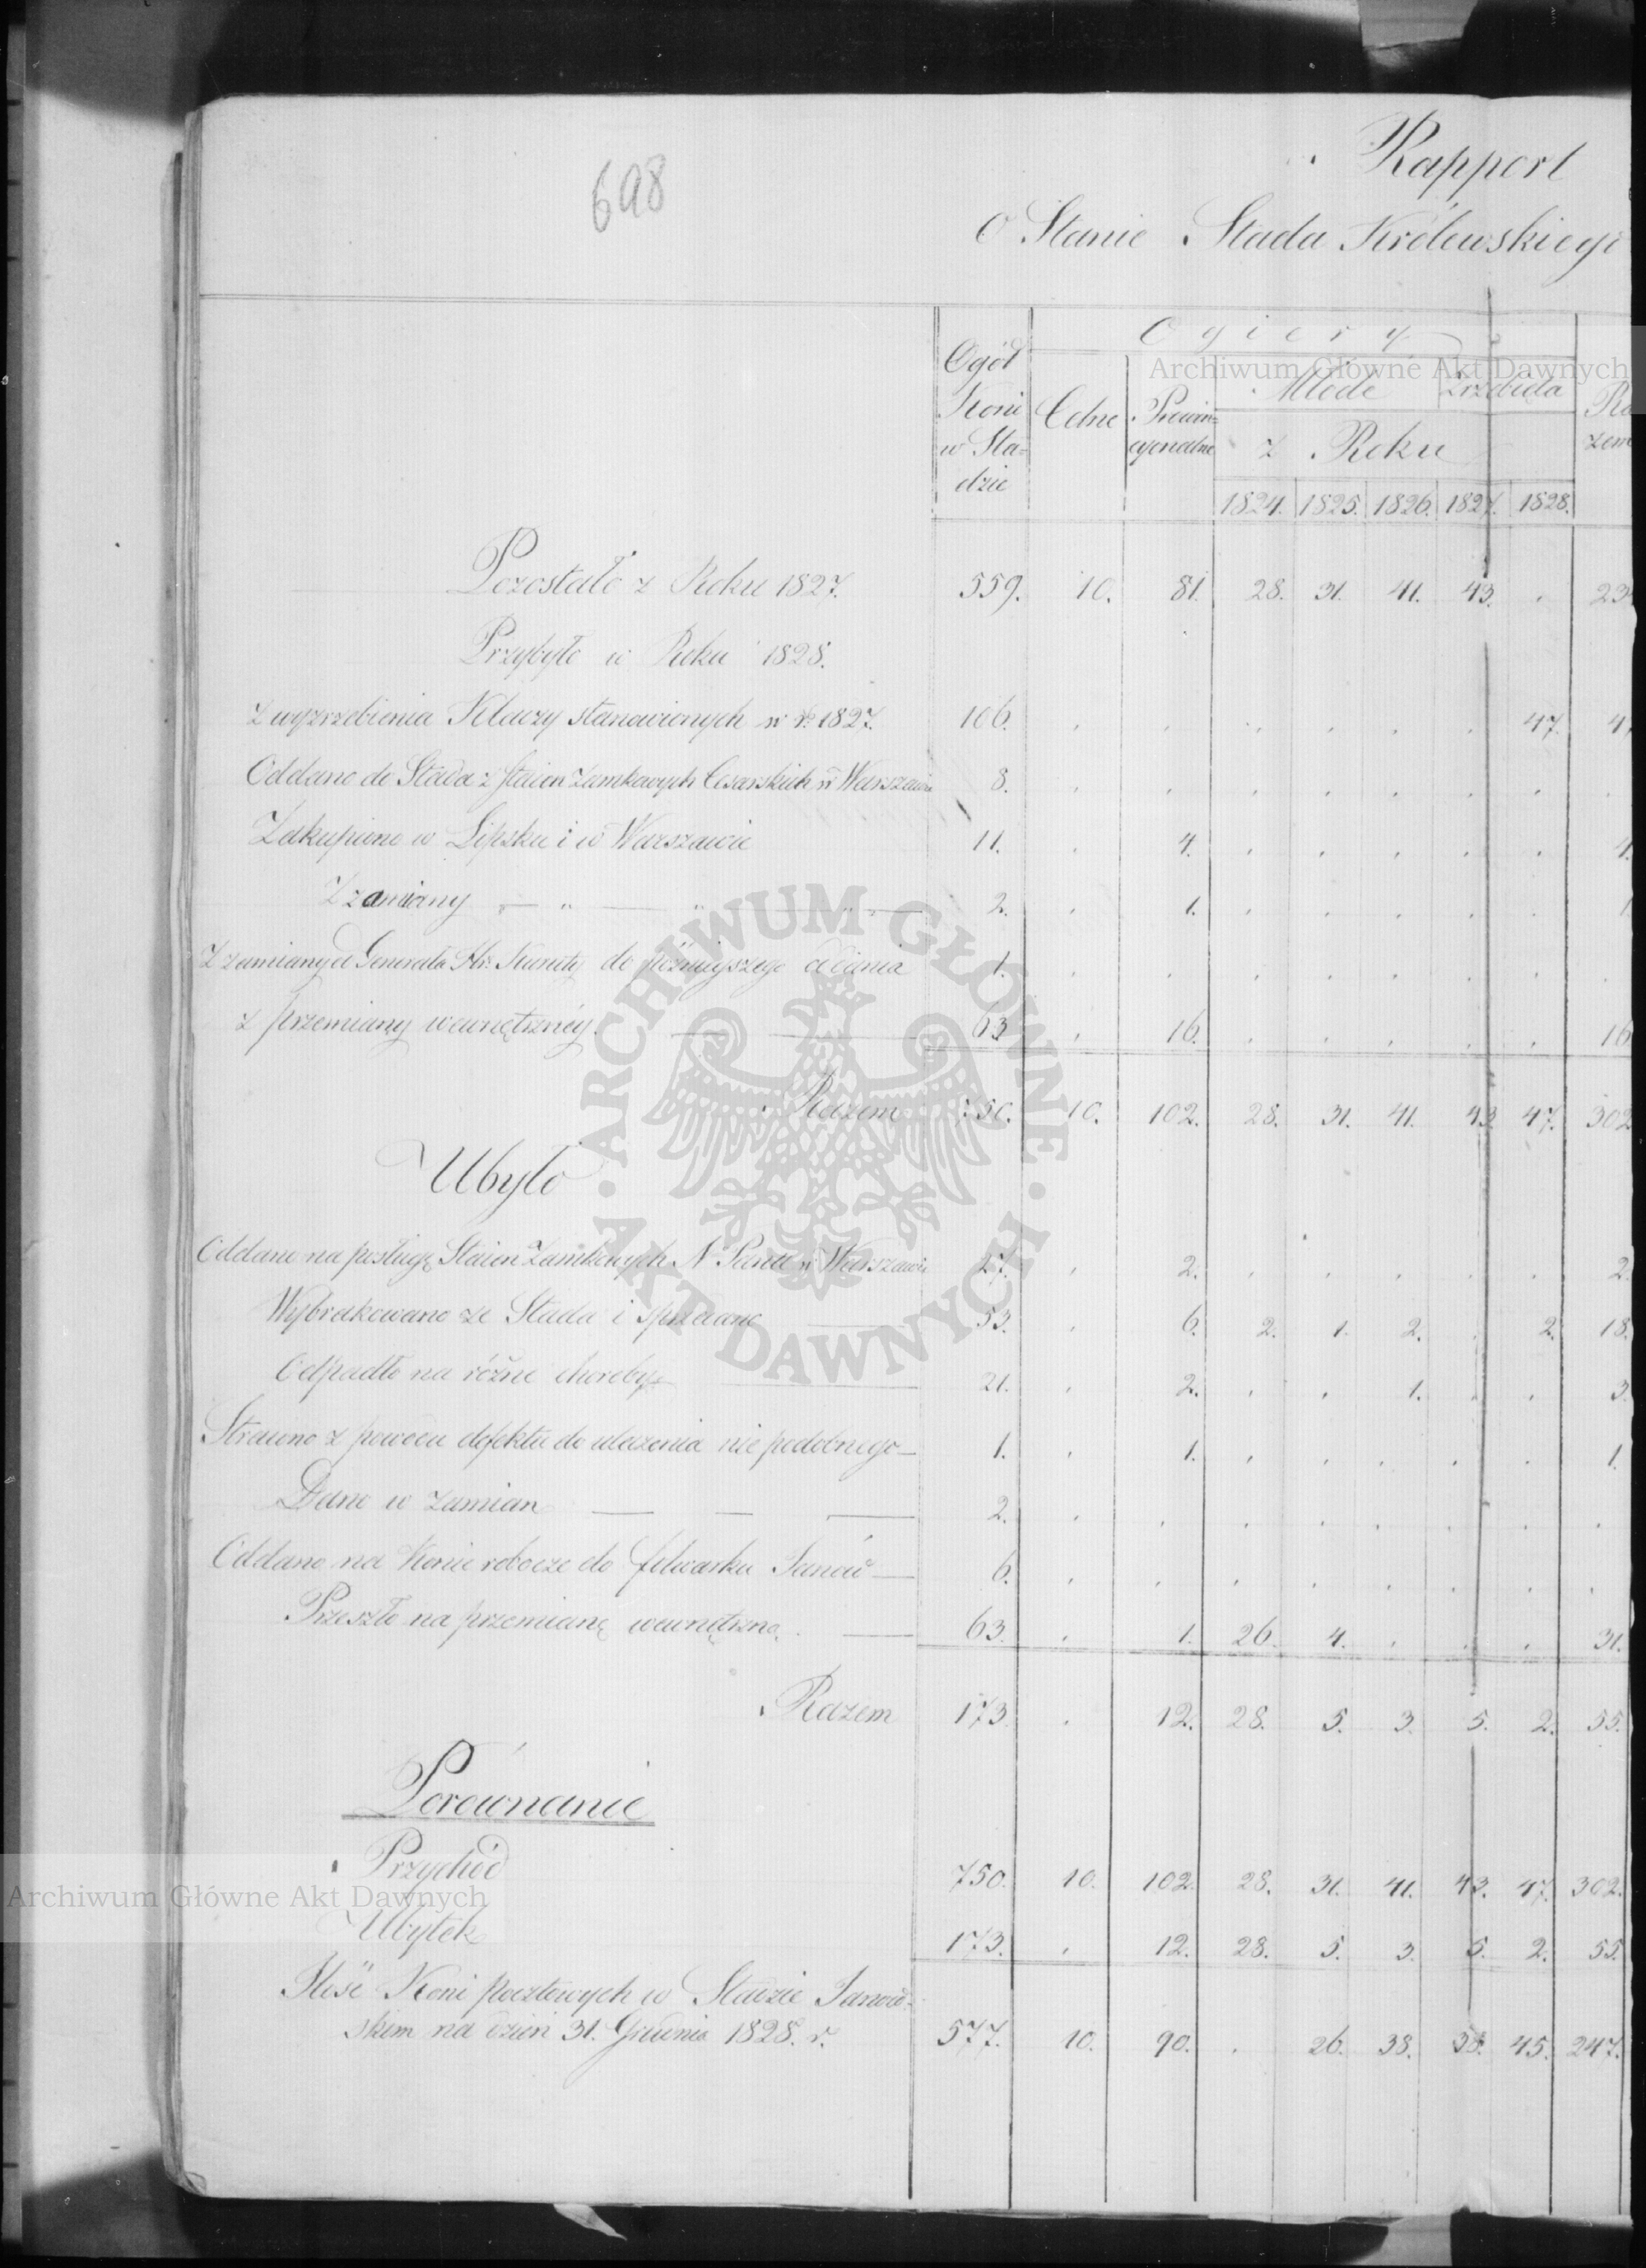 698
Rapport
O Stanie Stada Królewskiego
Ogół Koni w Sta= dzie
Ogiery
Celne
Prowin= cyonalne
Młode Źrzebięta
z Roku
1824. 1825. 1826. 1827. 1828.
Ra zem
Pozostało z Roku 1827. 559. 10. 81. 28. 31. 41. 43. . 23
Przybyło w Roku 1828.
Z wyźrzebienia Klaczy stanowionych w r. 1827. 106. . . . . . . 47. 4
Oddano do Stada z stajen Zamkowych Cesarskich w Warszawie 8. . . . . . . . .
Zakupiono w Lipsku i w Warszawie 11. . 4. . . . . . 4.
Z zamiany 2. . 1. . . . . . 1
Z zamiany od Generała Hr. Kuruty do późniejszego oddania 1. . . . . . . . .
z przemiany wewnętrznéy. 63. . 16. . . . . . 16
Razem 750. 10. 102. 28. 31. 41. 43. 47. 302
Ubyło
Oddano na posługę Stajen Zamkowych N. Pana w Warszawie 27. . 2. . . . . . 2.
Wybrakowano ze Stada i sprzedano 53. . 6. 2. 1. 2. 2. 18.
Odpadło na różne choroby 21. . 2. . . 1. . . 3.
Stracono z powodu defektu do uleczenia nie podobnego 1. . 1. . . . . . 1.
Dano w zamian 2. . . . . . . . .
Oddano na Konie robocze do folwarku Janów 6. . . . . . . . .
Przeszło na przemianę wewnętrzną. 63. . 1. 26. 4. . . . 31.
Razem 173. . 12. 28. 5. 3. 5. 2. 55.
Porównanie
Przychód 750. 10. 102. 28. 31. 41. 43. 47. 302.
Ubytek 173. . 12. 28. 5. 3. 5. 2. 55.
Ilość Koni pocztowych w Stadzie Janow=
skim na dzień 31. Grudnia 1828. r. 577. 10. 90. . 26. 38. 38. 45. 247.
Archiwum Główne Akt Dawnych
ARCHIWUM GŁÓWNE · AKT DAWNYCH ·
Archiwum Główne Akt Dawnych